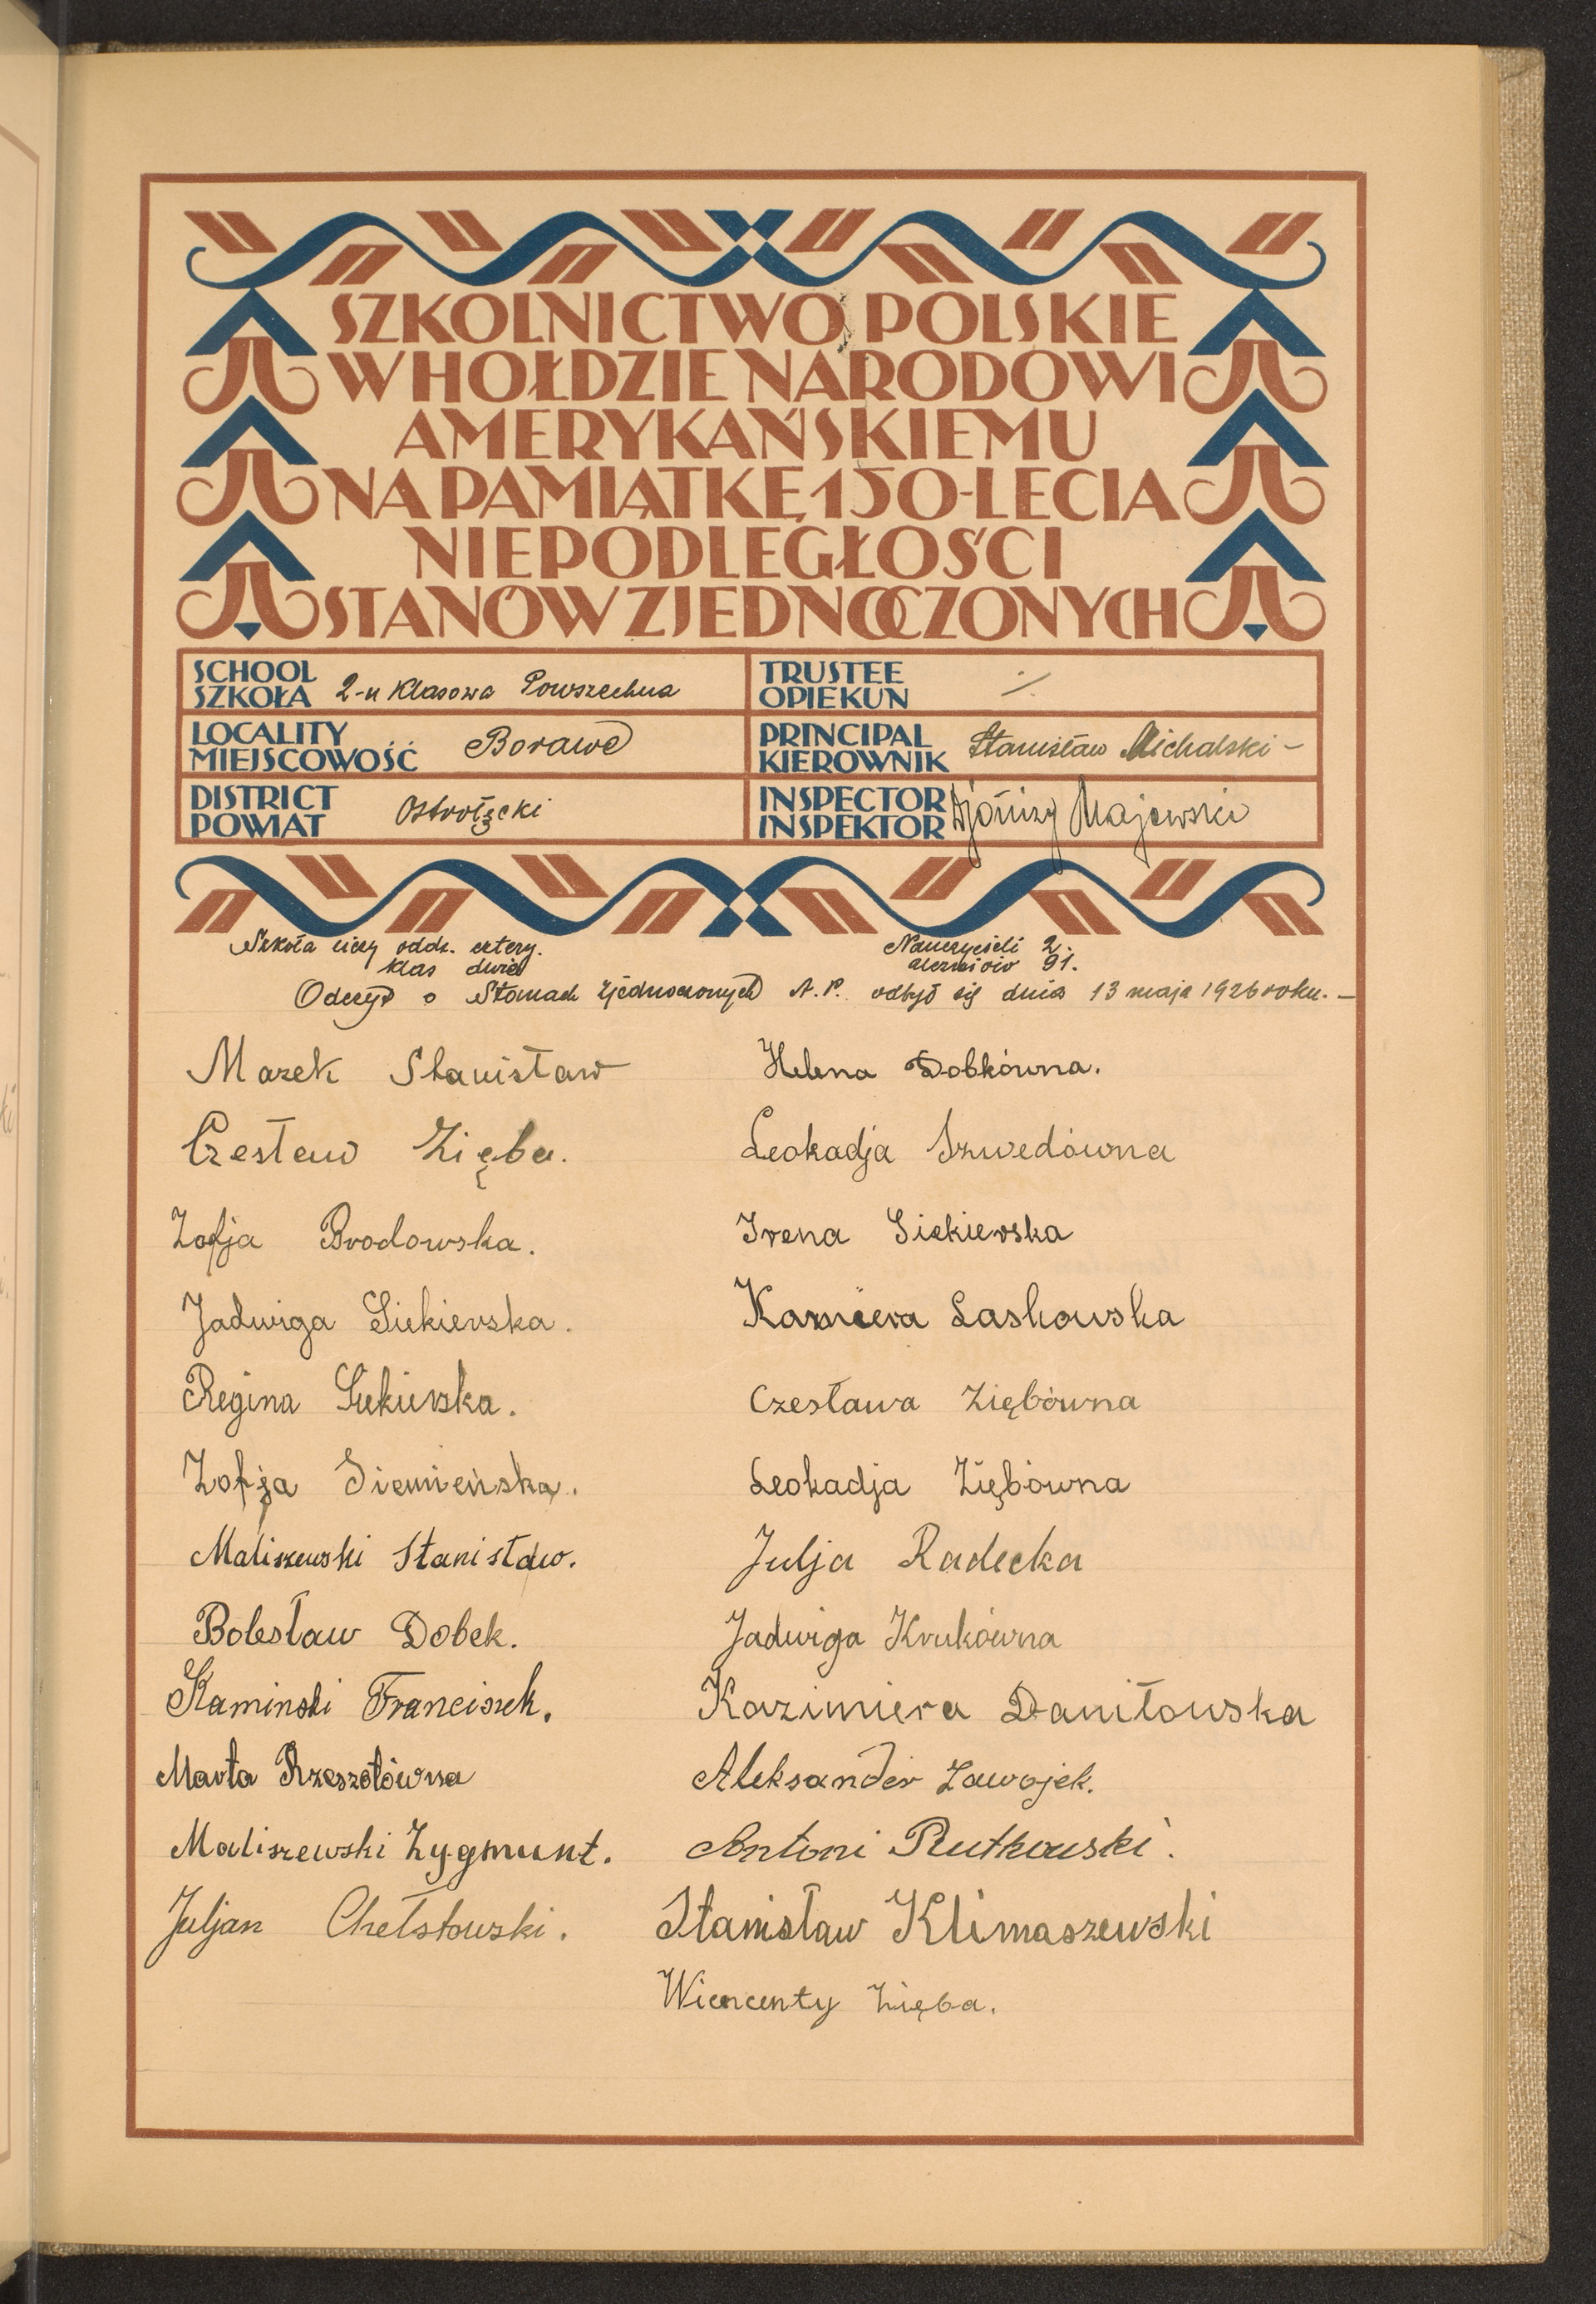 SZKOLNICTWO POLSKIE
W HOŁDZIE NARODOWI
AMERYKAŃSKIEMU
NA PAMIĄTKĘ 150-LECIA
NIEPODLEGŁOŚCI
STANÓW ZJEDNOCZONYCH
SCHOOL
SZKOŁA 2-u Klasowa Powszechna
TRUSTEE
OPIEKUN
LOCALITY
MIEJSCOWOŚĆ Borawe
PRINCIPAL
KIEROWNIK Stanisław Michalski
DISTRICT
POWIAT Ostrołęcki
INSPECTOR
INSPEKTOR Majewski
Szkoła liczy oddz. cztery.
klas dwie
Nauczycieli 2.
uczniów 91.
Odczyt o Stanach Zjednoczonych A. P. odbył się dnia 13 maja 1926 roku. —
Marek Stanisław
Czesław Zięba.
Zofja Brodowska.
Jadwiga Siekierska.
Regina Siekierska.
Zofja Siemieńska.
Maliszewski Stanisław.
Bolesław Dobek.
Kaminski Franciszek.
Marta Rzeszotówna
Maliszewski Zygmunt.
Juljan Chełstowski.
Helena Dobkówna.
Leokadja Szwedówna
Irena Siekierska
Laskowska
Czesława Ziębówna
Leokadja Ziębówna
Julja Radecka
Jadwiga Krukówna
Kazimiera Daniłowska
Aleksander Zawojek.
Antoni Rutkowski.
Stanisław Klimaszewski
Wiencenty Zięba.